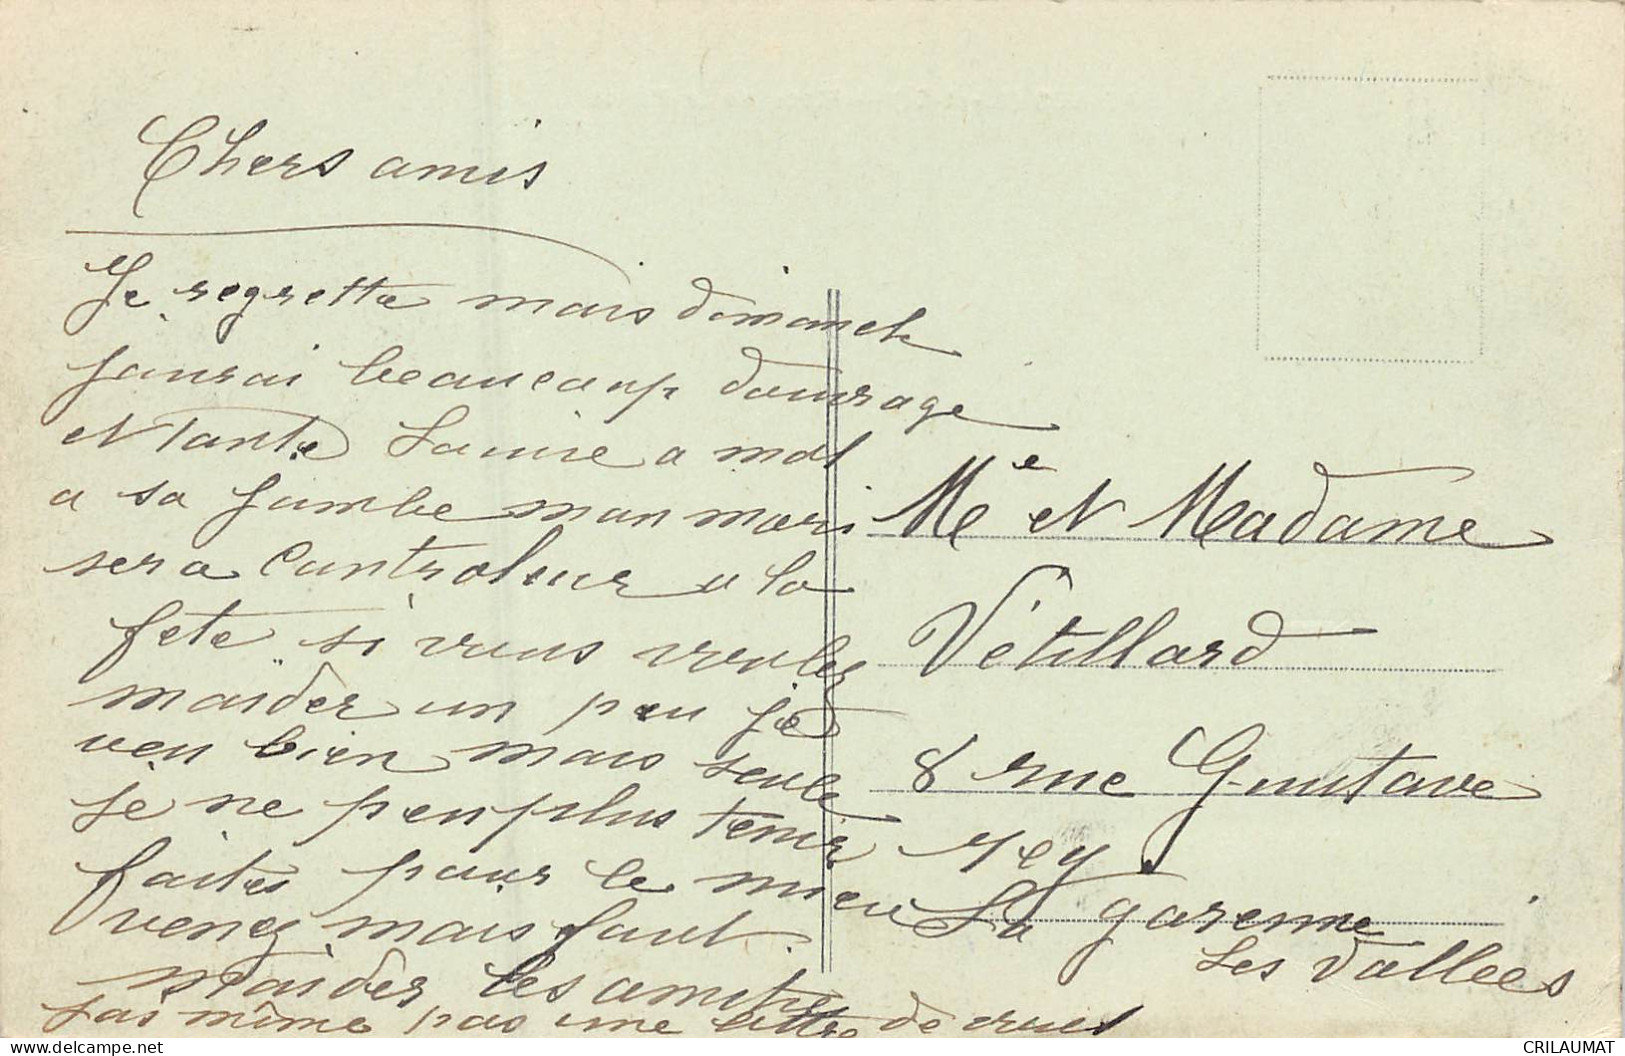 Chers amis
Je regrette mais dimanch
jaurai beaucoup douvrage
et Tante Laure a mal
a sa jambe mon mari
sera controleur a la
fete si vous voulez
maider un peu je
veu bien mais seule
je ne peu plus tenir
faites pour le mieu
venez mais faut
maider les amitiés
jai même pas une lettre de vous
Me et Madame
Vétillard
8 rue Gustave
rey
La garenne
Les Vallees
CRILAUMAT